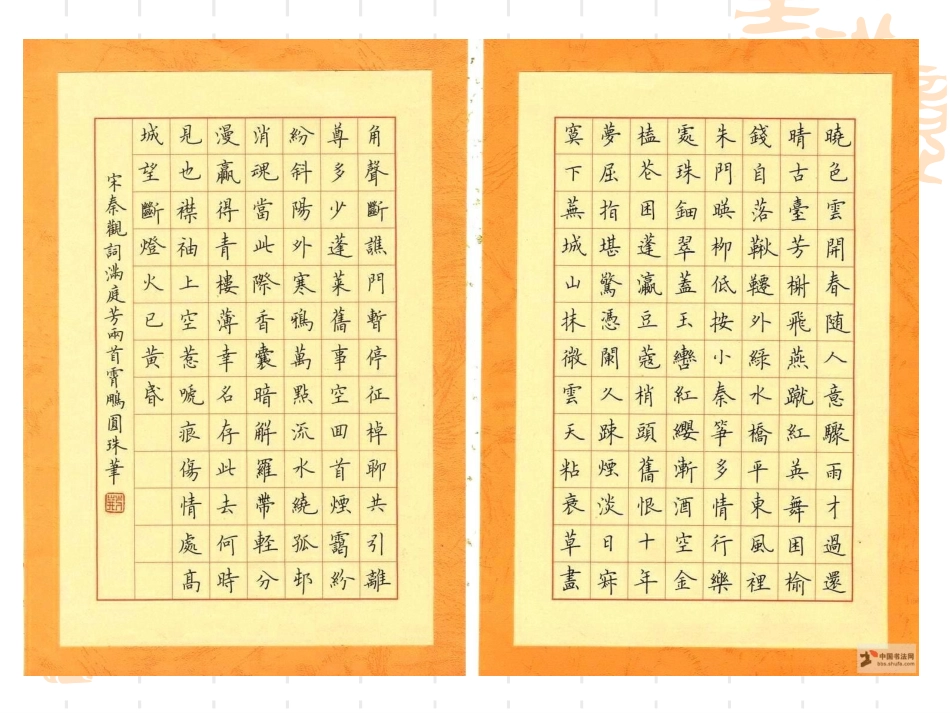 曉色雲開春随人意驟雨才過還
晴古臺芳榭飛燕蹴紅英舞困榆
錢自落鞦韆外緑水橋平東風裡
朱門暎柳低按小秦筝多情行樂
處珠鈿翠蓋玉轡紅纓漸酒空金
榼芲困蓬瀛豆蔻梢頭舊恨十年
夢屈指堪驚憑闌久踈煙淡日寂
寞下蕪城山抹微雲天粘衰草畫
角聲斷譙門暫停征棹聊共引離
尊多少蓬萊舊事空回首煙靄紛
紛斜陽外寒鴉萬點流水繞孤邨
消魂當此際香囊暗解羅帶輕分
漫贏得青樓薄幸名存此去何時
見也襟袖上空惹嗁痕傷情處高
城望斷燈火已黄昏
宋秦觀詞滿庭芳兩首霄鵬圓珠筆
中国书法网
bbs.shufa.com